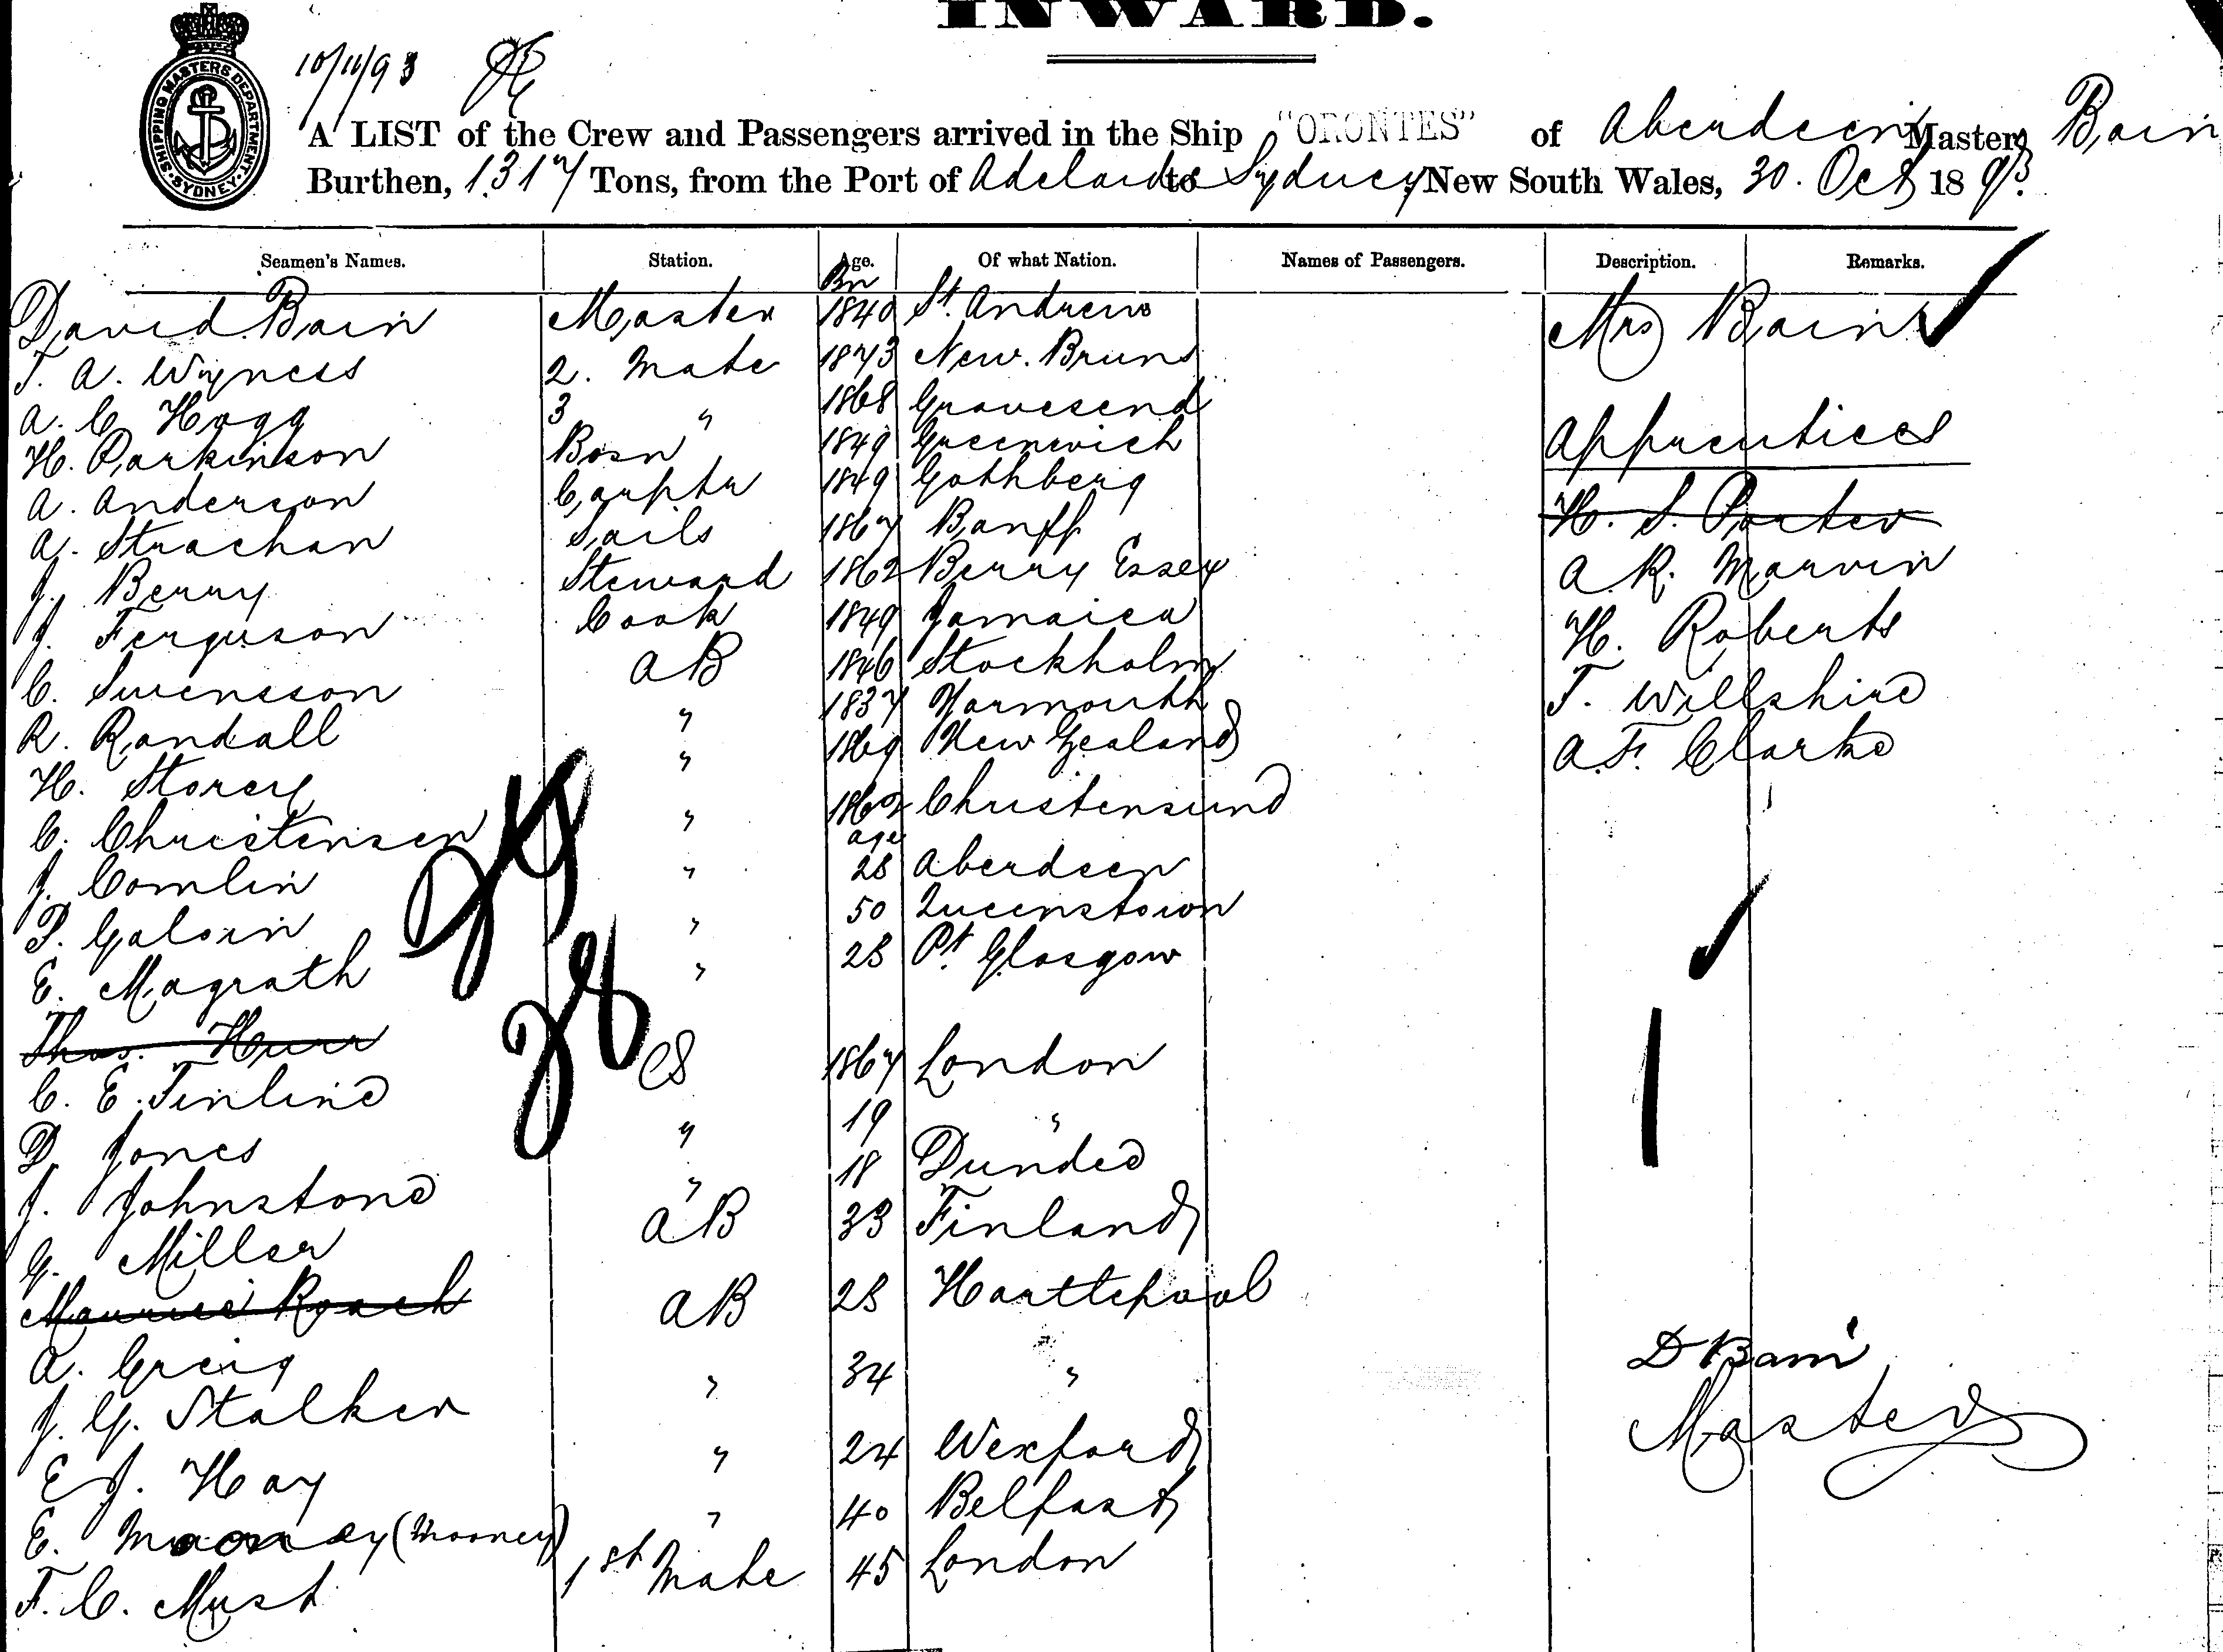 INWARD.
SHIPPING MASTERS DEPARTMENT SYDNEY
10/11/93
A LIST of the Crew and Passengers arrived in the Ship "ORONTES" of Aberdeen Master, Bain
Burthen, 1317 Tons, from the Port of Adelaide to Sydney New South Wales, 30. Oct 1893.
Seamen's Names. Station. Age. Of what Nation. Names of Passengers. Description. Remarks.
Bn
David Bain Master 1840 St. Andrews Mrs Bain
T. A. Wyness 2. Mate 1873 New. Bruns
A. C Hogg 3 " 1868 Gravesend
H. Parkinson Bosn " 1849 Greenwich Apprentices
A. Anderson Carptr 1849 Gothberg
A. Strachan Sails 1867 Banff H. S. Porter
J. Berry Steward 1862 Berry Essex A R. Marvin
J. Ferguson Cook 1849 Jamaica H. Roberts
C. Swensson AB 1846 Stockholm T. Willshire
R. Randall " 1837 Yarmouth A. F. Clarke
H. Storey " 1869 New Zealand
C. Christensen " 1862 Christensund
age
J. Comlin " 28 Aberdeen
P. Galvin " 50 Queenstown
E. Magrath " 28 Pt. Glasgow
Thos. Hurr
C. E. Tinline OS 1867 London
D. Jones " 19 "
J. Johnstone " 18 Dundee
G. Miller AB 33 Finland
Maurice Roach
A. Greig AB 28 Hartlepool
J. G. Stalker " 34 "
E J. Hay " 24 Wexford
E. (Mooney) " 40 Belfast
F. C. Must 1st Mate 45 London
28
D Bain
Master